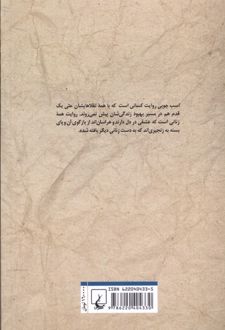 اسب چوبی روایت کسانی است که با همهٔ تقلاهایشان حتی یک
قدم هم در مسیر بهبود زندگی‌شان پیش نمی‌روند. روایت همهٔ
زنانی است که عشقی در دل دارند و هراسان‌اند از بازگوی آن و پای
بسته به زنجیری‌اند که به دست زنانی دیگر بافته شده.
ISBN 622040433-5
9 786220 404330